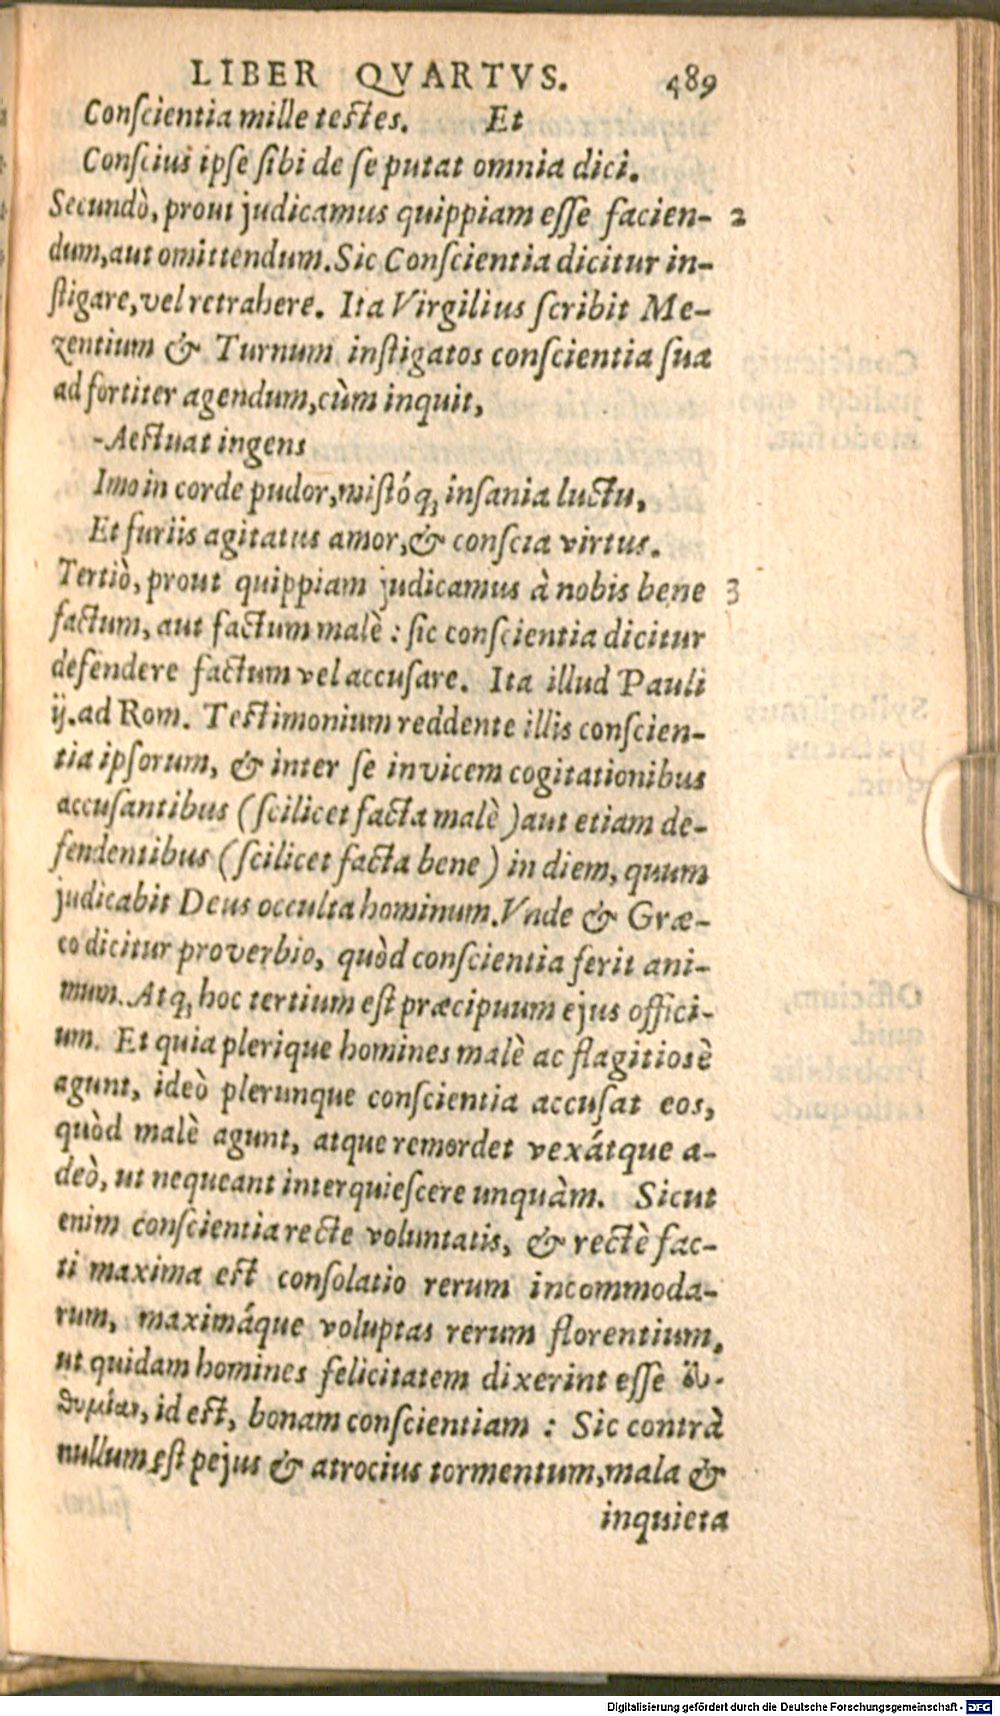 LIBER QVARTVS. 489
Conſcientia mille teſtes. Et
Conſcius ipſe ſibi de ſe putat omnia dici.
Secundò, prout judicamus quippiam eſſe facien- 2
dum, aut omittendum. Sic Conſcientia dicitur in-
ſtigare, vel retrahere. Ita Virgilius ſcribit Me-
zentium & Turnum inſtigatos conſcientia ſua
ad fortiter agendum, cùm inquit,
-Aeſtuat ingens
Imo in corde pudor, miſtóq́; inſania luctu,
Et furiis agitatus amor, & conſcia virtus.
Tertiò, prout quippiam judicamus à nobis bene 3
factum, aut factum malè : ſic conſcientia dicitur
defendere factum vel accuſare. Ita illud Pauli
ij. ad Rom. Teſtimonium reddente illis conſcien-
tia ipſorum, & inter ſe invicem cogitationibus
accuſantibus (ſcilicet facta malè) aut etiam de-
fendentibus (ſcilicet facta bene) in diem, quum
judicabit Deus occulta hominum. Vnde & Græ-
co dicitur proverbio, quòd conſcientia ferit ani-
mum. Atq́; hoc tertium eſt præcipuum ejus offici-
um. Et quia plerique homines malè ac flagitiosè
agunt, ideò plerunque conſcientia accuſat eos,
quòd malè agunt, atque remordet vexátque a-
deò, ut nequeant interquieſcere unquàm. Sicut
enim conſcientia recte voluntatis, & rectè fac-
ti maxima eſt conſolatio rerum incommoda-
rum, maximáque voluptas rerum florentium,
ut quidam homines felicitatem dixerint eſſe ἐυ-
θυμίαν, id eſt, bonam conſcientiam : Sic contrà
nullum eſt pejus & atrocius tormentum, mala &
inquieta
Digitalisierung gefördert durch die Deutsche Forschungsgemeinschaft - DFG